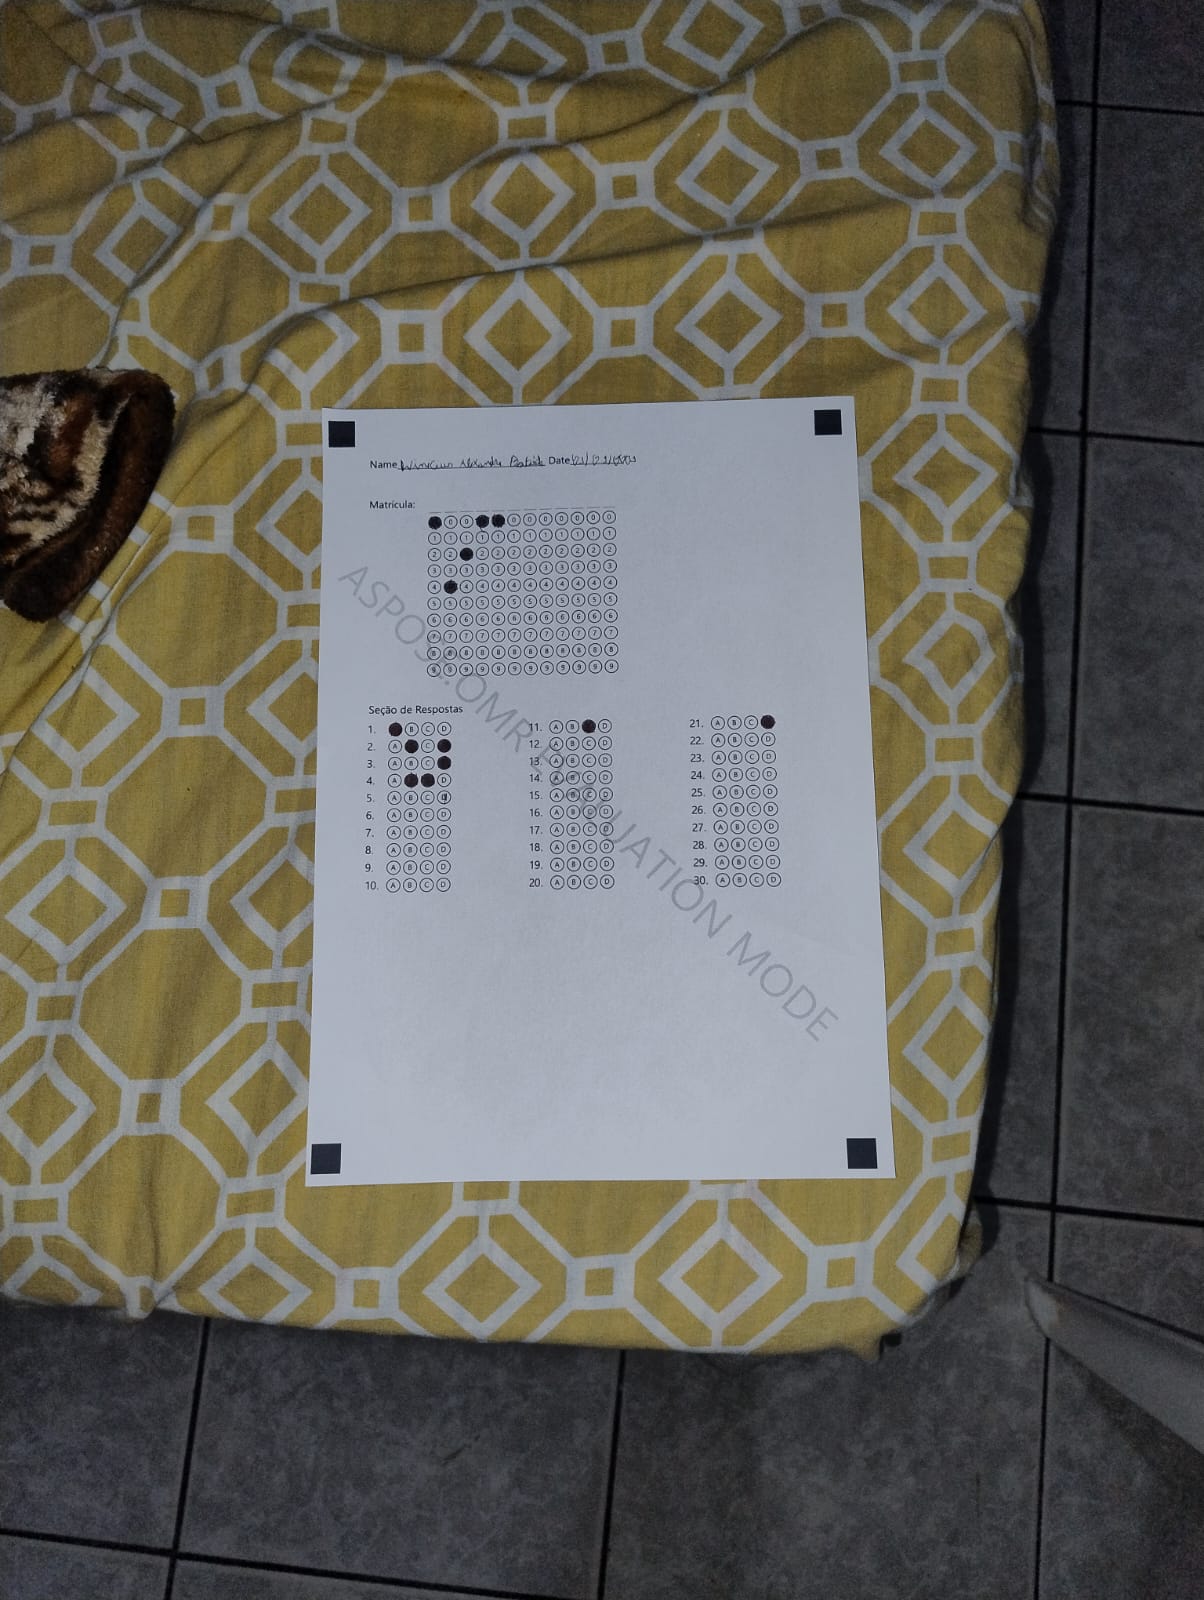 Name Date
Matrícula:
0 0 0 0 0 0 0 0 0
1 1 1 1 1 1 1 1 1 1 1 1
2 2 2 2 2 2 2 2 2 2 2
3 3 3 3 3 3 3 3 3 3 3 3
4 4 4 4 4 4 4 4 4 4 4
5 5 5 5 5 5 5 5 5 5 5 5
6 6 6 6 6 6 6 6 6 6 6 6
7 7 7 7 7 7 7 7 7 7 7 7
8 8 8 8 8 8 8 8 8 8 8 8
9 9 9 9 9 9 9 9 9 9 9 9
Seção de Respostas
1. B C D
2. A C
3. A B C
4. A D
5. A B C D
6. A B C D
7. A B C D
8. A B C D
9. A B C D
10. A B C D
11. A B D
12. A B C D
13. A B C D
14. A B C D
15. A B C D
16. A B C D
17. A B C D
18. A B C D
19. A B C D
20. A B C D
21. A B C
22. A B C D
23. A B C D
24. A B C D
25. A B C D
26. A B C D
27. A B C D
28. A B C D
29. A B C D
30. A B C D
ASPOSE.OMR EVALUATION MODE